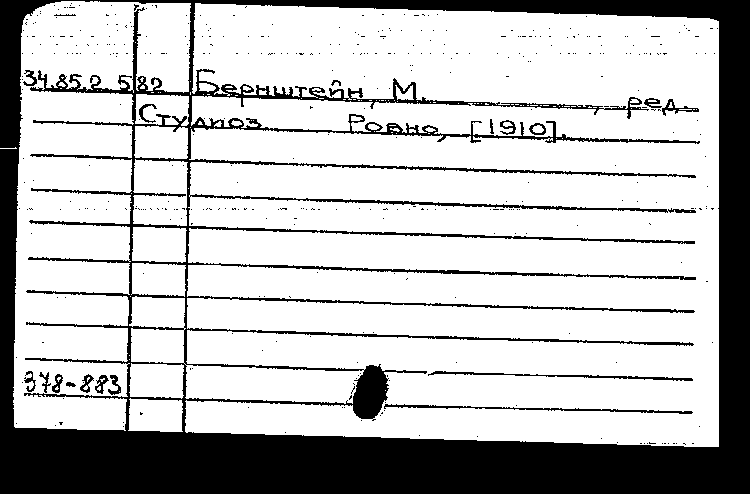 34.85.2 582 Бернштейн, М. , ред.
Студиоз Ровно, [1910].
378-883